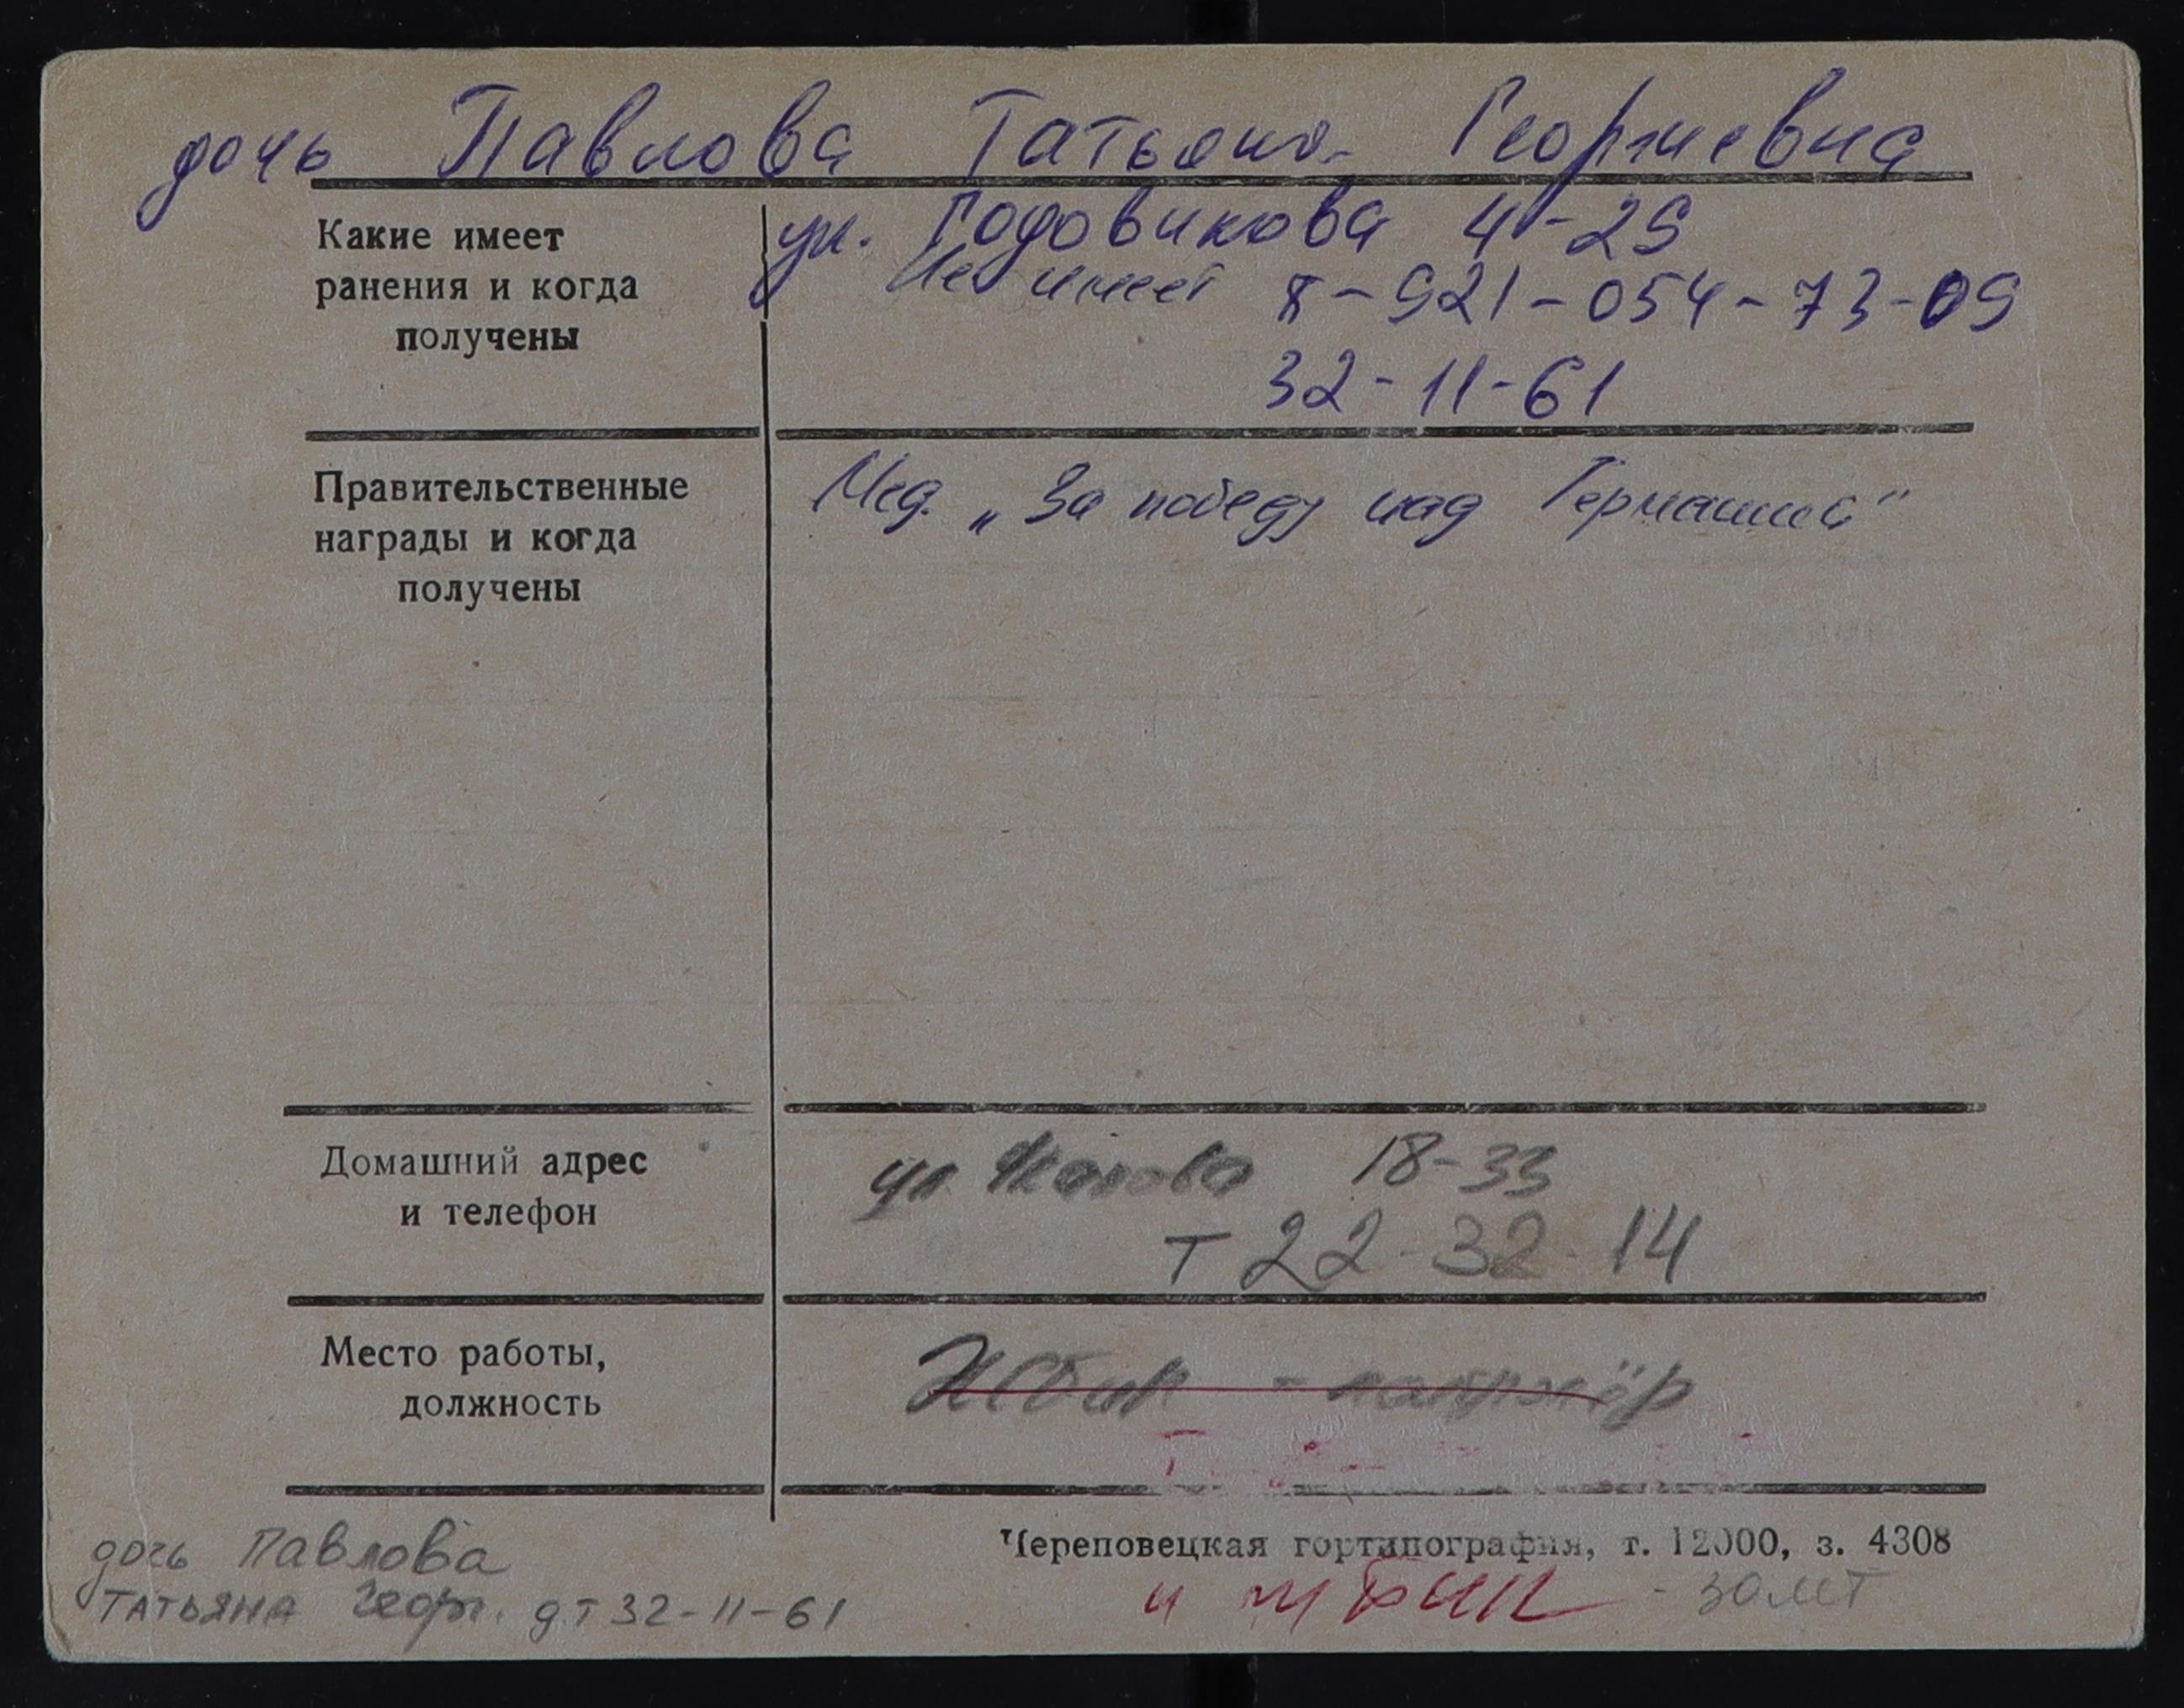 дочь Павлова Татьяна Георгиевна
Какие имеет
ранения и когда
получены
ул. Годовикова 4-29
Не имеет 8-921-054-73-09
32-11-61
Правительственные
награды и когда
получены
Мед. „За победу над Германией"
Домашний адрес
и телефон
ул 18-33
т 22-32-14
Место работы,
должность
Череповецкая гортипография, т. 12000, з. 4308
дочь Павлова
Татьяна Георг. д.т 32-11-61
- 30 лет